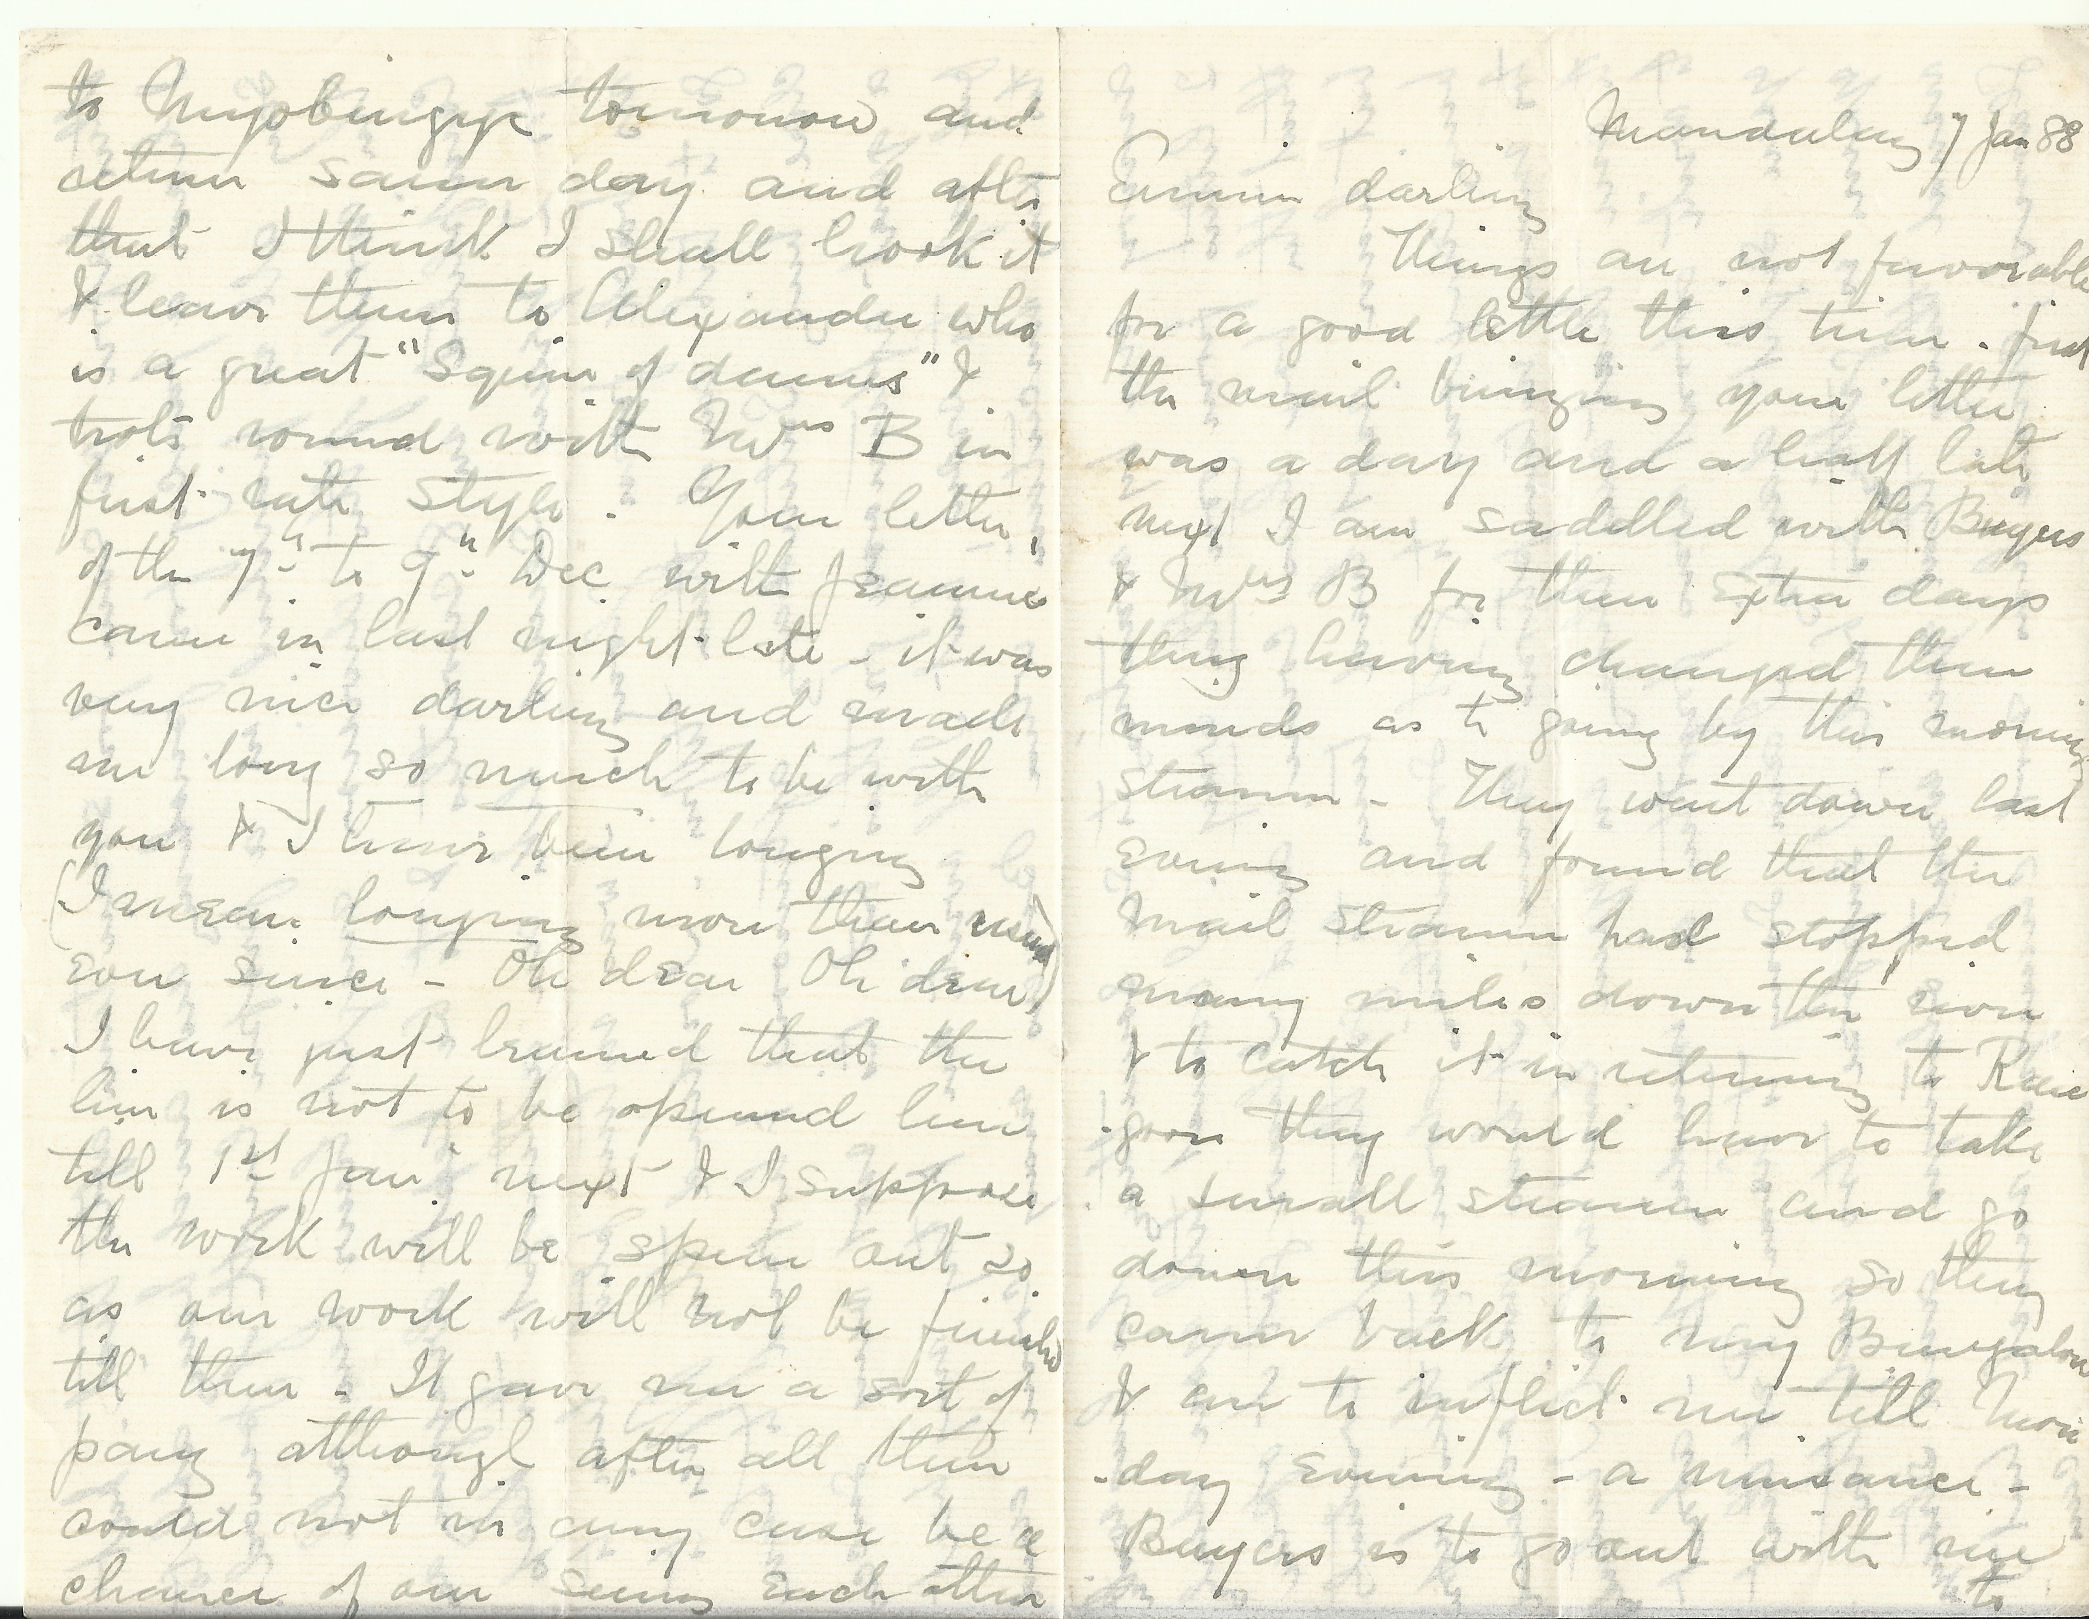 Mandalay 7 Jan 88
Emmie darling
Things are not favorable
for a good letter this time. first
the mail bringing your letter
was a day and a half late
next I am sadelled with Buyers
& Mrs B for three extra days
they having changed their
minds as to going by this morning
steamer - They went down last
evening and found that the
Mail steamer had stopped
many miles down the river
& to catch it in returning to Ran
-goon they would have to take
a small steamer and go
down this morning so they
came back to my Bungalow
& are to inflict me till Mon
-day evening - a nuisance -
Buyers is to go out with me
to
to Myobingyi tomorrow and
return same day and after
that I think I shall hook it
& leave them to Alexander who
is a great "Squire of dames" &
trots round with Mrs B in
first rate style. Your letter,
of the 7th to 9th Dec with
came in last night late - it was
very nice darling and made
me long so much to be with
you & I have been longing
(I mean longing more than usual)
ever since - Oh dear Oh dear!
I have just learned that the
line is not to be opened here
till 1st Jan next & I suppose
the work will be spun out so
as our work will not be finished
till then - It gave me a sort of
pang although after all there
could not in any case be a
chance of our seeing each other